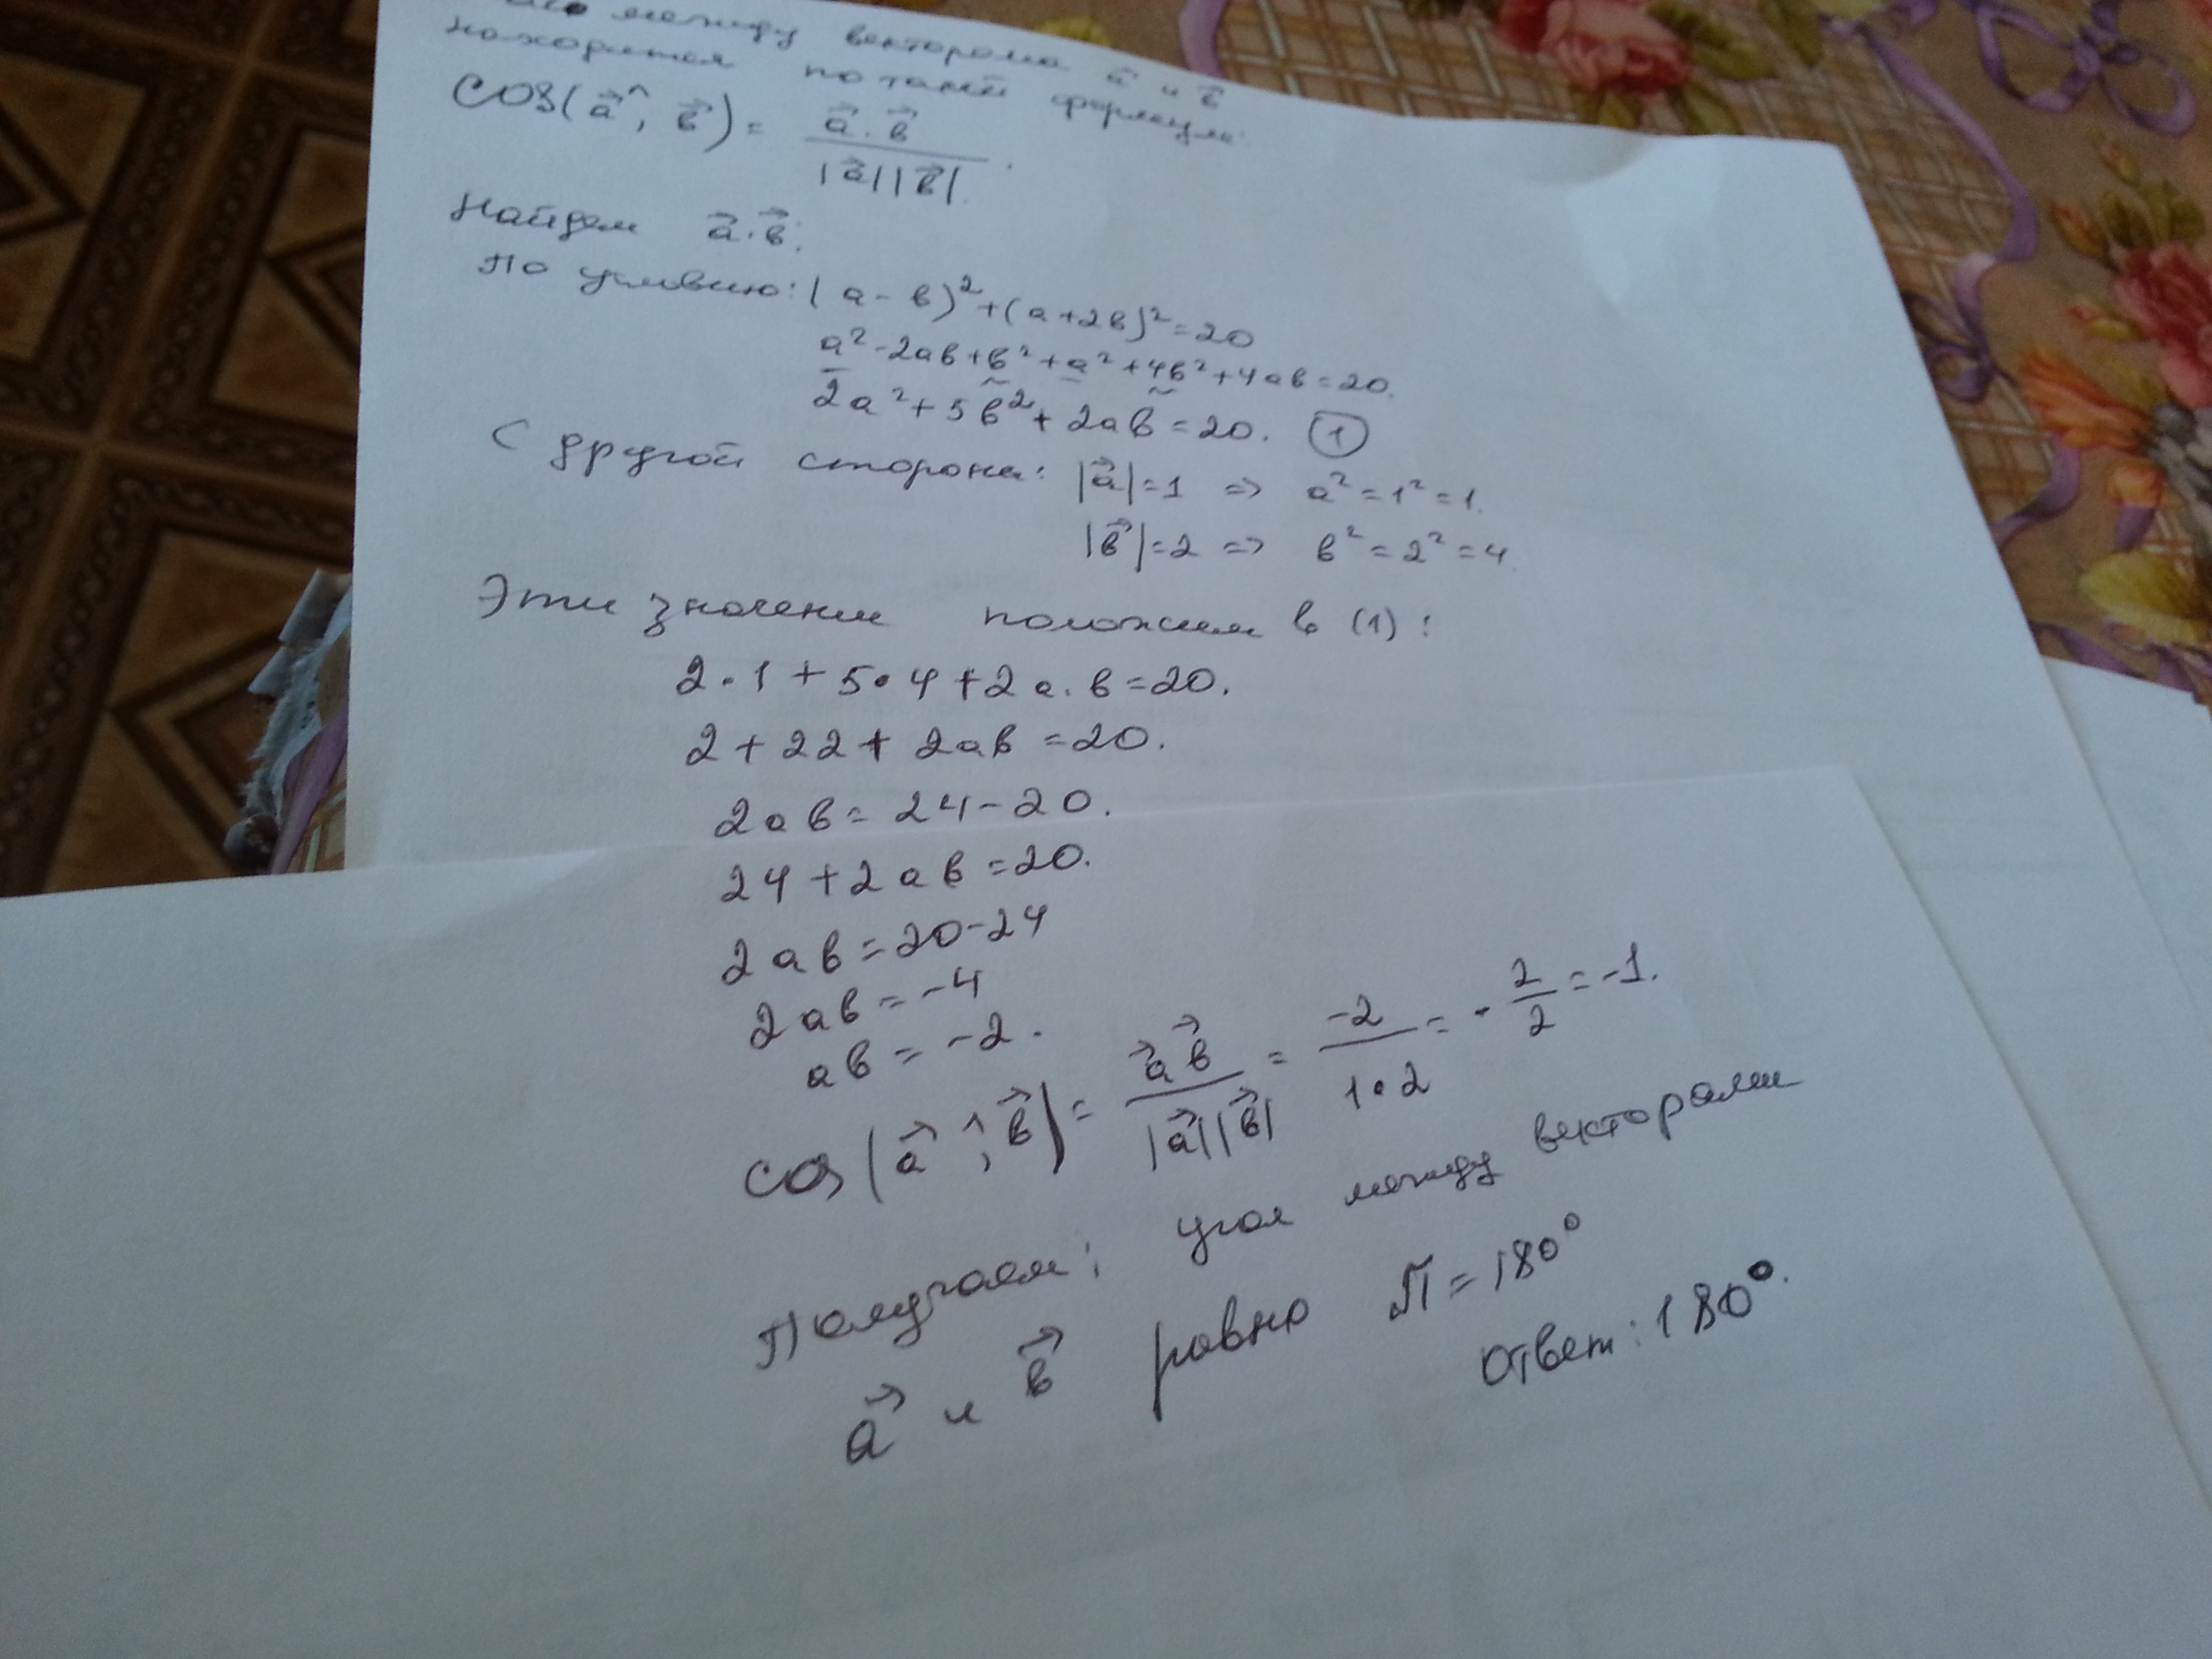 между векторами a⃗ и b⃗
находится по такой формуле:
cos(a⃗^, b⃗) = a⃗·b⃗ / |a⃗||b⃗|.
Найдем a⃗·b⃗:
По условию: (a-b)²+(a+2b)²=20
a²-2ab+b²+a²+4b²+4ab=20.
2a²+5b²+2ab=20. ①
С другой стороны: |a⃗|=1 => a²=1²=1.
|b⃗|=2 => b²=2²=4.
Эти значения положим в (1):
2·1+5·4+2a·b=20.
2+22+2ab=20.
2ab=24-20.
24+2ab=20.
2ab=20-24
2ab=-4
ab=-2.
cos(a⃗^, b⃗) = a⃗b⃗ / |a⃗||b⃗| = -2 / 1·2 = -2/2 = -1.
Получаем: угол между векторами
a⃗ и b⃗ равно π=180°
Ответ: 180°.